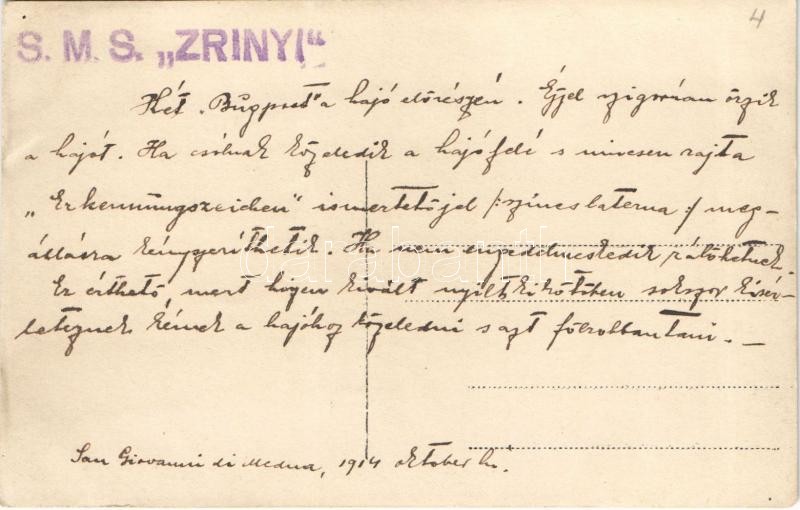 4
S. M. S. „ZRINYI“
Két „Bugpost" a hajó előrészén. Éjjel szigorúan őrzik
a hajót. Ha csólnak közeledik a hajó felé s nincsen rajta
„Erkennungszeichen" ismertetőjel /:színes laterna:/ meg-
állásra kényszeríthetik. Ha nem engedelmeskedik rálőhetnek.
Ez érthető, mert hogen kivált nyilt kikötőben sokszor kisér-
leteznek kémek a hajóhoz közeledni s azt fölrobbantani. —
San Giovanni di Medua, 1914 oktober hv.
darabanth